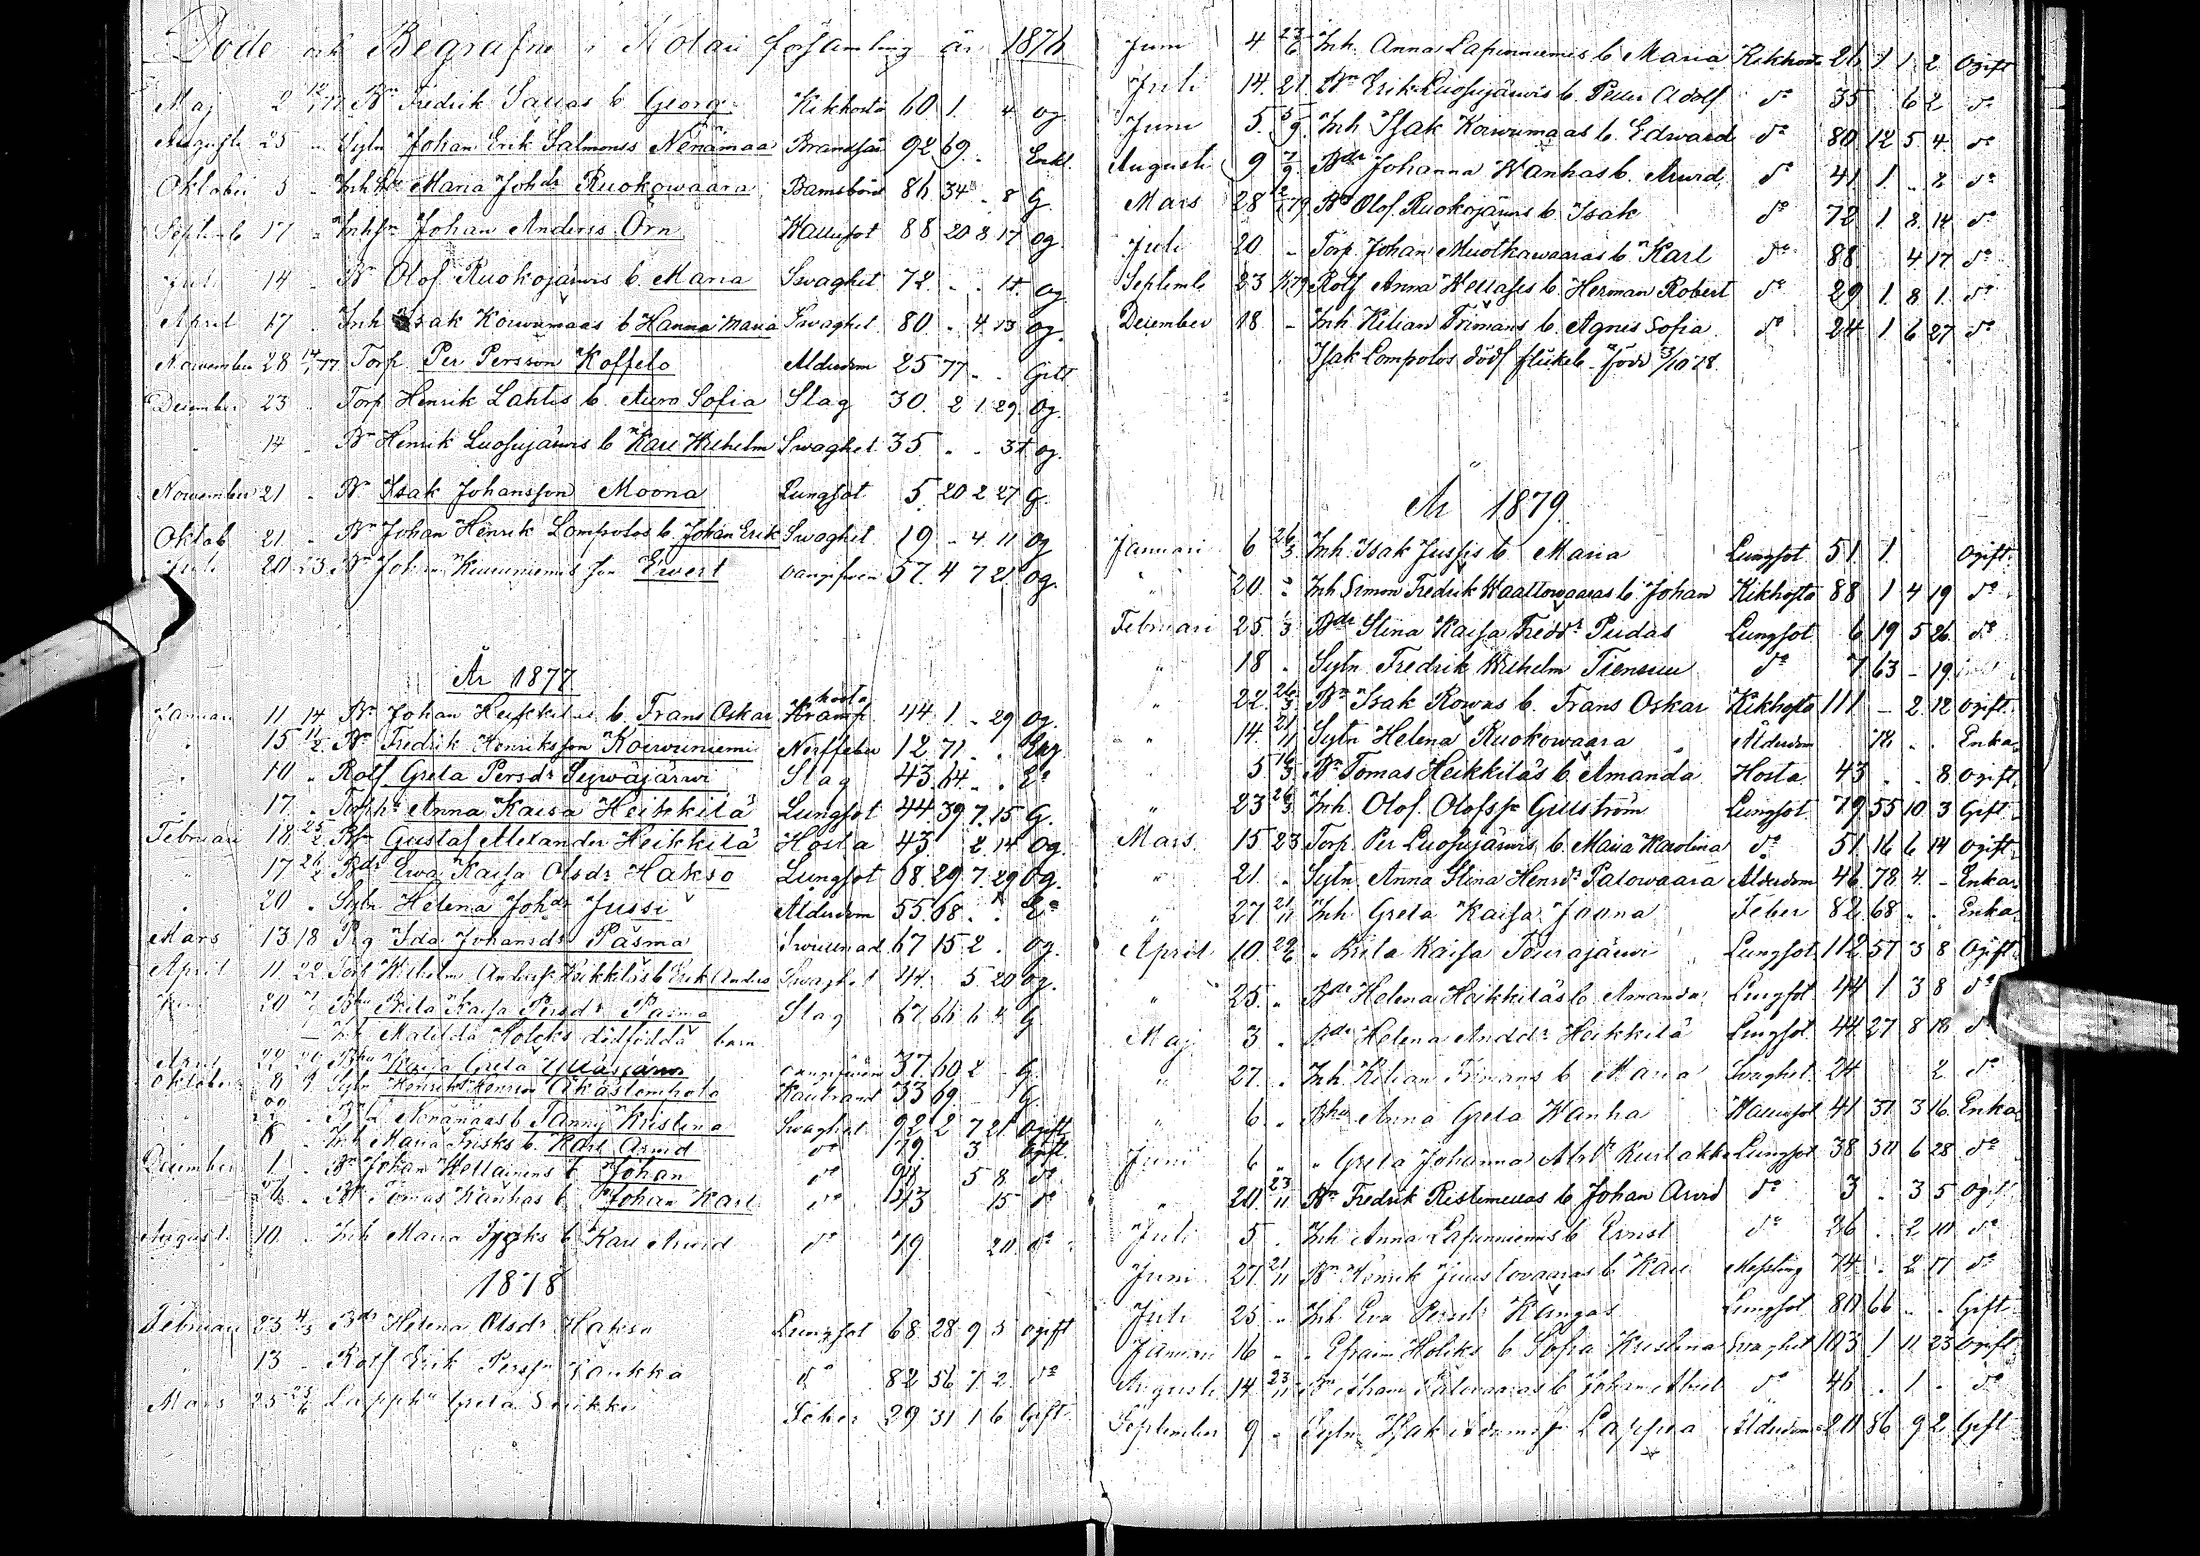 Döde och Begrafne i Kolari församling år 1876
Maj 2 12/1 77 Bn Fredrik SaUas b. Georg Kikhosta 60 1 . 4 og
Augusti 25 - Sytn Johan Erik Salmonss Nenämaa Brandsår 92 69 . Enkl.
Oktober 5 - Inh hu Maria Johdr Ruokowaara Barnsbörd 86 34 . 8 G.
Septemb 17 - Inhsn Johan Anderss Örn Hallsot 88 20 8 17 og
Juli 14 - Bn Olof Ruokojärwis b. Maria Swaghet 72 . . 1t. og
April 17 . Inh Isak Koiwumaas b Hanna Maria Swaghet 80 - 4 13 og.
November 28 14/1 77 Torp Per Persson Koffelo Alderdom 25 77 . . Gift
December 23 . Torp Henrik Lahtis b. Auro Sofia Slag 30. 2 1 29. Og.
" 14 - Bn Henrik Luosujärwis b Karl Wilhelm Swaghet 35 . . 3t og.
November 21 - Bn Isak Johansson Moona Lungsot 5 20 2 27 G.
Oktob 21 - Bn Johan Henrik Lompolos b. Johan Erik Swaghet 19 - 4 11 og
Juli 20 23 Bn Johan son Ewert 57. 4 7 21. og.
År 1877
Januari 11 14 Bn Johan Heikkiläs b. Frans Oskar Kramp hosta 44 1 . 29 Og.
" 15 11/2 Bn Fredrik Henriksson Koiwuniemi Nerffeber 12 71 . .
" 10 . Rotf Greta Persdr Sejwäjärwi Slag 43 64 . . Ea
" 17 . Anna Kaisa Heikkilä Lungsot 44 39 7 15 G.
Februari 18 25/2 Bsn Gustaf Alexander Heikkilä Hosta 43 2 14 Og.
" 17 26/2 Bdr Ewa Kaisa Olsdr Hakso Lungsot 68 29 7 29 Og.
" 20 . Sytn Helena Johdr Jussi Alderdom 55 68 . . Ea
Mars 13 18 Pig Ida Johansdr Pasma Swullnad 67 15 2 . og.
April 11 22 Torp Wilhelm Heikkiläs b Erik Anders Swaghet 44 5 20 og.
20 Bhu Brita Kaisa Persdr Pasma Slag 67 66 6 4 G
- Inh Matilda Holcks dödfödda barn
April 22 Bhu Kaisa Greta 37 60 2 - G.
Oktober 8 9 Sytn Henrik Henrsson Äkäslompolo Kallbrand 33 69 . 1 G.
Nenämaas b Fanny Kristina Swaghet 92 2 7 21 Ogift
8 . Inh Maria Frisks b. Karl Arvid do 79. 3 Ogift.
December 1 . Bn Johan Hettainens b Johan do 5 8 do.
26 . Bn Tomas Wanhas b. Johan Karl do 15 do
August 10 . Inh Maria b Karl Arvid do 79 20 do
1878
Februari 23 4/3 Bdr Helena Olsdr Hakso Lungsot 68 28 9 5 ogift
" 13 - Rotf Erik Perss Kaukka do 82 56 7 2 do
Mars 25 23/6 Lapphu Greta Feber 29 31 1 6 Gift.
Juni 4 23/6 Inh. Anna Lapinniemis b Maria Kikhosta 26 1 1 2 Ogift
Juli 14. 21 Bn Erik Luosujärwis b. Petter Adolf do 35 . 6 2 do
Juni 5. 5/9 Inh Isak Koiwumaas b. Edward do 80 12 5 4 do
Augusti 9 7/9 Bdr Johanna Wanhas b. Arvid do 41 1 . 2 do
Mars 28 79 Bn Olof Ruokojärwis b. Isak do 72 1 8 14 do
Juli 20 - Torp Johan Muotkawaaras b Karl do 88 4 17 do
Septemb 23 79 Rotf Anna Hettas b. Herman Robert do 29 1 8 1. do
December 18. - Inh Kilian Frimans b. Agnes Sofia do 24 1 6 27 do
Isak Lompolos dödf flickeb. född 3/10 78.
År 1879.
Januari 6 26/3 Inh. Isak Jussis b Maria Lungsot 51 1 Ogift.
" 20. - Inh Simon Fredrik Waattowaaras b Johan Kikhosta 88 1 4 19 do
Februari 25 1/3 Bdr Stina Kaisa Freddr Pudas Lungsot 6 19 5 26 do
" 18 . Sytn Fredrik Wilhelm Tiensuu do 7 63 - 19
" 22 26/3 Bn Isak Rowas b. Frans Oskar Kikhosta 111 - 2 12 ogift.
" 14 21/11 Sytn Helena Ruokowaara Ålderdom 78 . . Enka
5 16/3 Bn Tomas Heikkiläs b. Amanda Hosta 43 . . 8 Ogift.
" 23 26/3 Inh. Olof Olofsson Gullström Lungsot 79 55 10 3 Gift
Mars 15 23 Torp Per Luosujärwis b. Maria Karolina do 51 16 6 14 Ogift
" 21 . Sytn Anna Stina Henrdr Palowaara Alderdom 46 78 4 - Enka
" 27 21/11 Inh Greta Kaisa Joona Feber 82 68 . . Enka
April 10. 22/6 " Brita Kaisa Teurajärwi Lungsot 112 57 3 8 Ogift
" 25. " Bdr Helena Heikkiläs b Amanda Lungsot 44 1 3 8 do
Maj 3 . Bdr Helena Anddr Heikkilä Lungsot 44 27 8 18 do
" 27 . Inh Kilian Frimans b Maria Swaghet 24 2 do
" 6 . Bhu Anna Greta Wanha Hallsot 41 31 3 16 Enka
Juni 6 " " Greta Johanna Kurtakko Lungsot 38 30 6 28 do
" 20 23/11 Bn Fredrik Ristimellas b Johan Arvid do 3 . 3 5 Ogift
Juli 5 . Inh Anna Lapinniemis b Ernst do 26 . 2 10 do
Juni 27 21/11 Bn Henrik Juustowaaras b Karl Messling 74 . 2 17 do
Juli 25 " Inh Eva Persdr Kangas Lungsot 80 66 . . Gift
Januari 16 " " Efraim Holcks b Sofia Kristina Swaghet 103 1 11 23 Ogift
Augusti 14 23/11 Bn Palowaaras b Johan do 46 . 1 . do
September 9 - Sytn Isak Lappea Ålderdom 20 86 9 2 Gift